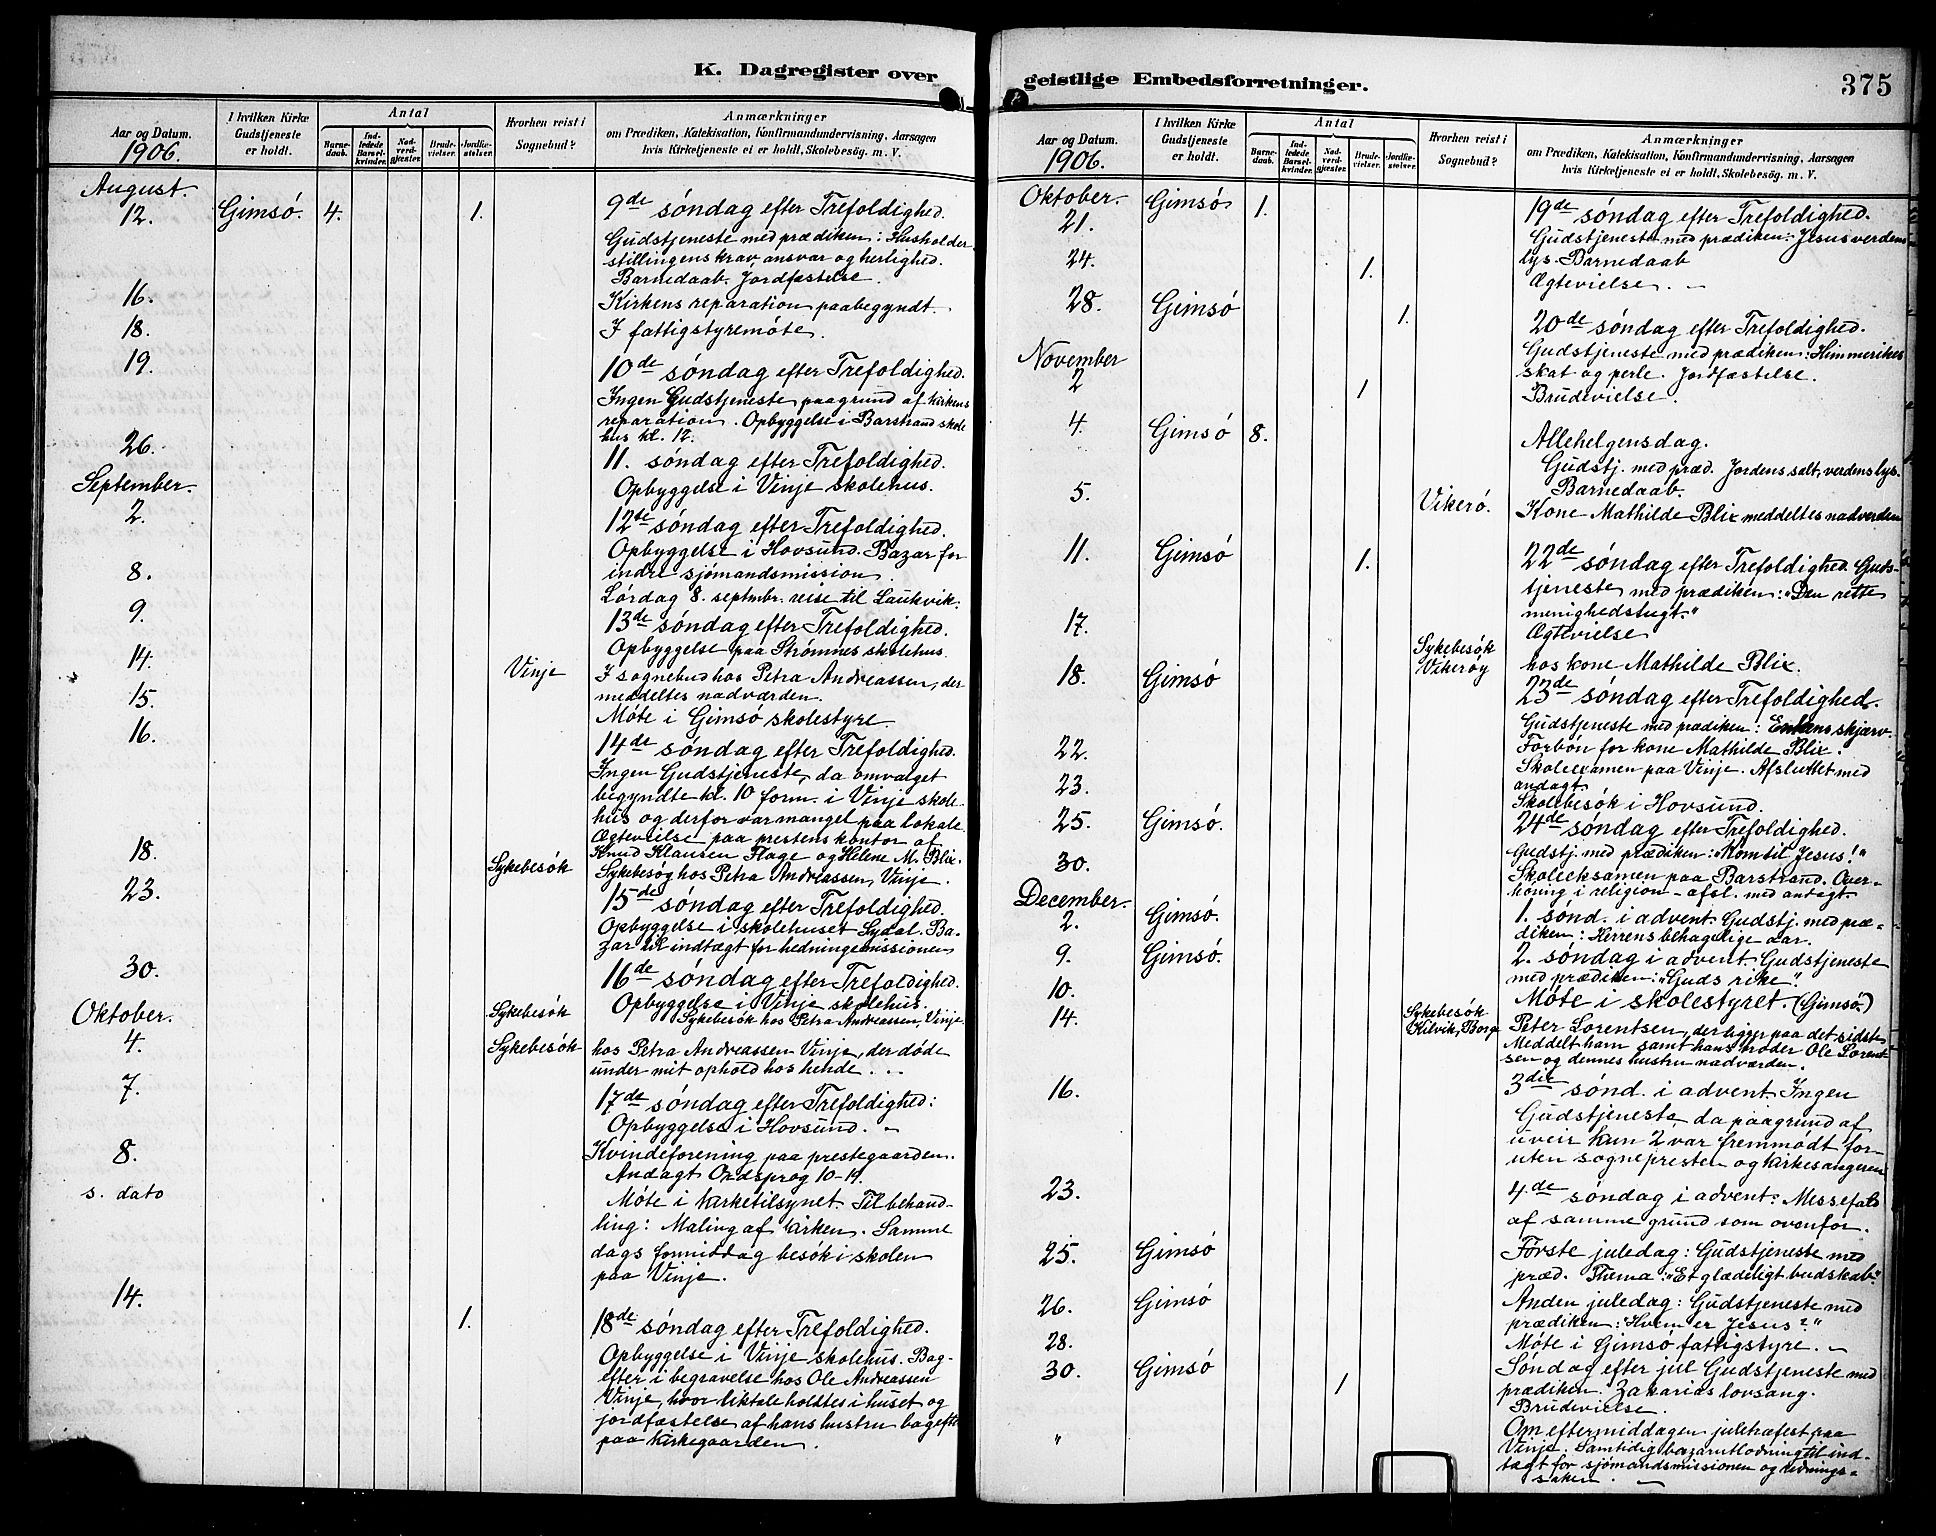 K. Dagregister over
Aar og Datum.
1906.
I hvilken Kirke
Gudstjeneste
er holdt.
Antal
Barne-
daab.
Ind-
ledede
Barsel-
kvinder.
Nad-
verd-
gjester.
Brude-
vielser.
Jordfæ-
stelser.
Hvorhen reist i
Sognebud?
Anmærkninger
om Prædiken, Katekisation, Konfirmandundervisning, Aarsagen
hvis Kirketjeneste ei er holdt, Skolebesög. m. V.
August.
12. Gimsó. 4. 1. 9de sóndag efter Trefoldighed.
Gudstjeneste med prædiken: Husholder
stillingens krav ansvar og herlighed.
Barnedaab. Jordfæstelse.
16. Kirkens reparation paabegyndt.
18. I fattigstyremóte.
19. 10de sóndag efter Trefoldighed.
Ingen Gudstjeneste paagrund af kirkens
reparation. Opbyggelse i Barstrand skole
hus kl. 12.
26. 11. sóndag efter Trefoldighed.
Opbyggelse i Vinje skolehus.
September.
2. 12te sóndag efter Trefoldighed.
Opbyggelse i Hovsund. Bazar for
indre sjómandsmission.
8. Lórdag 8. septmbr. reise til Laukvik.
9. 13de sóndag efter Trefoldighed.
Opbyggelse paa Strómnes skolehus.
14. Vinje I sognebud hos Petra Andreassen, der
meddeltes nadværden.
15. Móte i Gimsó skolestyre.
16. 14de sóndag efter Trefoldighed.
Ingen Gudstjeneste, da omvalget
begyndte kl. 10 form. i Vinje skole-
hus og derfor var mangel paa lokale
Ægtevielse paa prestens kontor af
Knud Klausen Flage og Helene M. Blix.
18. Sykebesók Sykebesög hos Petra Andreassen, Vinje.
23. 15de sóndag efter Trefoldighed.
Opbyggelse i skolehuset Sydal. Ba-
zar til indtægt for hedningemissionen
30. 16de sóndag efter Trefoldighed.
Opbyggelse i Vinje skolehus.
Oktober. Sykebesók Sykebesók hos Petra Andreassen, Vinje.
4. Sykebesók hos Petra Andreassen Vinje, der dóde
under mit ophold hos hende...
7. 17de sóndag efter Trefoldighed:
Opbyggelse i Hovsund. -
8. Kvindeforening paa prestegaarden.
Andagt Ordsprog 10-19.
s. dato Móte i kirketilsynet. Til behand-
ling: Maling af kirken. Samme
dags formiddag besók i skolen
paa Vinje.
14. 1. 18de sóndag efter Trefoldighed.
Opbyggelse i Vinje skolehus. Bag-
efter i begravelse hos Ole Andreassen
Vinje, hvor liktale holdtes i huset og
jordfæstelse af hans hustru bagefter
paa kirkegaarden.
geistlige Embedsforretninger.
375
Aar og Datum.
1906.
I hvilken Kirke
Gudstjeneste
er holdt.
Antal
Barne-
daab.
Ind-
ledede
Barsel-
kvinder.
Nad-
verd-
gjester.
Brude-
vielser.
Jordfæ-
stelser.
Hvorhen reist i
Sognebud?
Anmærkninger
om Prædiken, Katekisation, Konfirmandundervisning, Aarsagen
hvis Kirketjeneste ei er holdt, Skolebesög. m. V.
Oktober.
21. Gimsó 1. 19de sóndag efter Trefoldighed.
Gudstjeneste med prædiken: Jesus verdens
lys. Barnedaab
24. 1. Ægtevielse. -
28. Gimsó 1. 20de sóndag efter Trefoldighed.
Gudstjeneste med prædiken: Himmerikes
skat og perle. Jordfæstelse.
November
2 1 Brudevielse.
4. Gimsó 8. Allehelgensdag.
Gudstj. med præd. Jordens salt, verdens lys.
Barnedaab.
5. Vikeró. Kone Mathilde Blix meddeltes nadverden
11. Gimsó 1. 22de sóndag efter Trefoldighed. Guds-
tjeneste med prædiken: "Den rette
menighedstugt."
Ægtevielse
17. Sykebesók
Vikeróy hos kone Mathilde Blix.
18. Gimsó 23de sóndag efter Trefoldighed.
Gudstjeneste med prædiken: Enkens skjærv.
Forbón for kone Mathilde Blix.
22. Skoleexamen paa Vinje. Afsluttet med
andagt.
23. Skolebesók i Hovsund.
25. Gimsó. 24de sóndag efter Trefoldighed.
Gudstj. med prædiken: "Kom til Jesus!"
30. Skoleeksamen paa Barstrand. Over-
hóring i religion - afsl. med andagt.
December.
2. Gimsó. 1. sónd. i advent. Gudstj. med præ-
diken: Herrens behagelige aar.
9. Gimsó. 2. sóndag i advent. Gudstjeneste
med prædiken: "Guds rike".
10. Móte i skolestyret. (Gimsó.)
14. Sykebesók
Kilvik, Borge Peter Lorentsen, der ligger paa det sidste
Meddelt ham samt hans broder Ole Lorent
sen og dennes hustru nadværden.
16. 3die sónd. i advent. Ingen
Gudstjeneste, da paagrund af
uveir kun 2 var fremmódt for-
uten sognepresten og kirkesangeren
23. 4de sóndag i advent: Messefald
af samme grund som ovenfor.
25. Gimsó Fórste juledag: Gudstjeneste med
præd. Thema: "Et glædeligt budskab".
26. Gimsó Anden juledag: Gudstjeneste med
prædiken: "Hvem er Jesus?"
28. Móte i Gimsó fattigstyre. -
30. Gimsó 1 Sóndag efter jul Gudstjeneste med
prædiken: Zakarias lovsang.
Brudevielse.
" Om eftermiddagen juletræfest paa
Vinje. Samtidig bazarutlodning til ind-
tægt for sjómandsmissionen og
saken. -